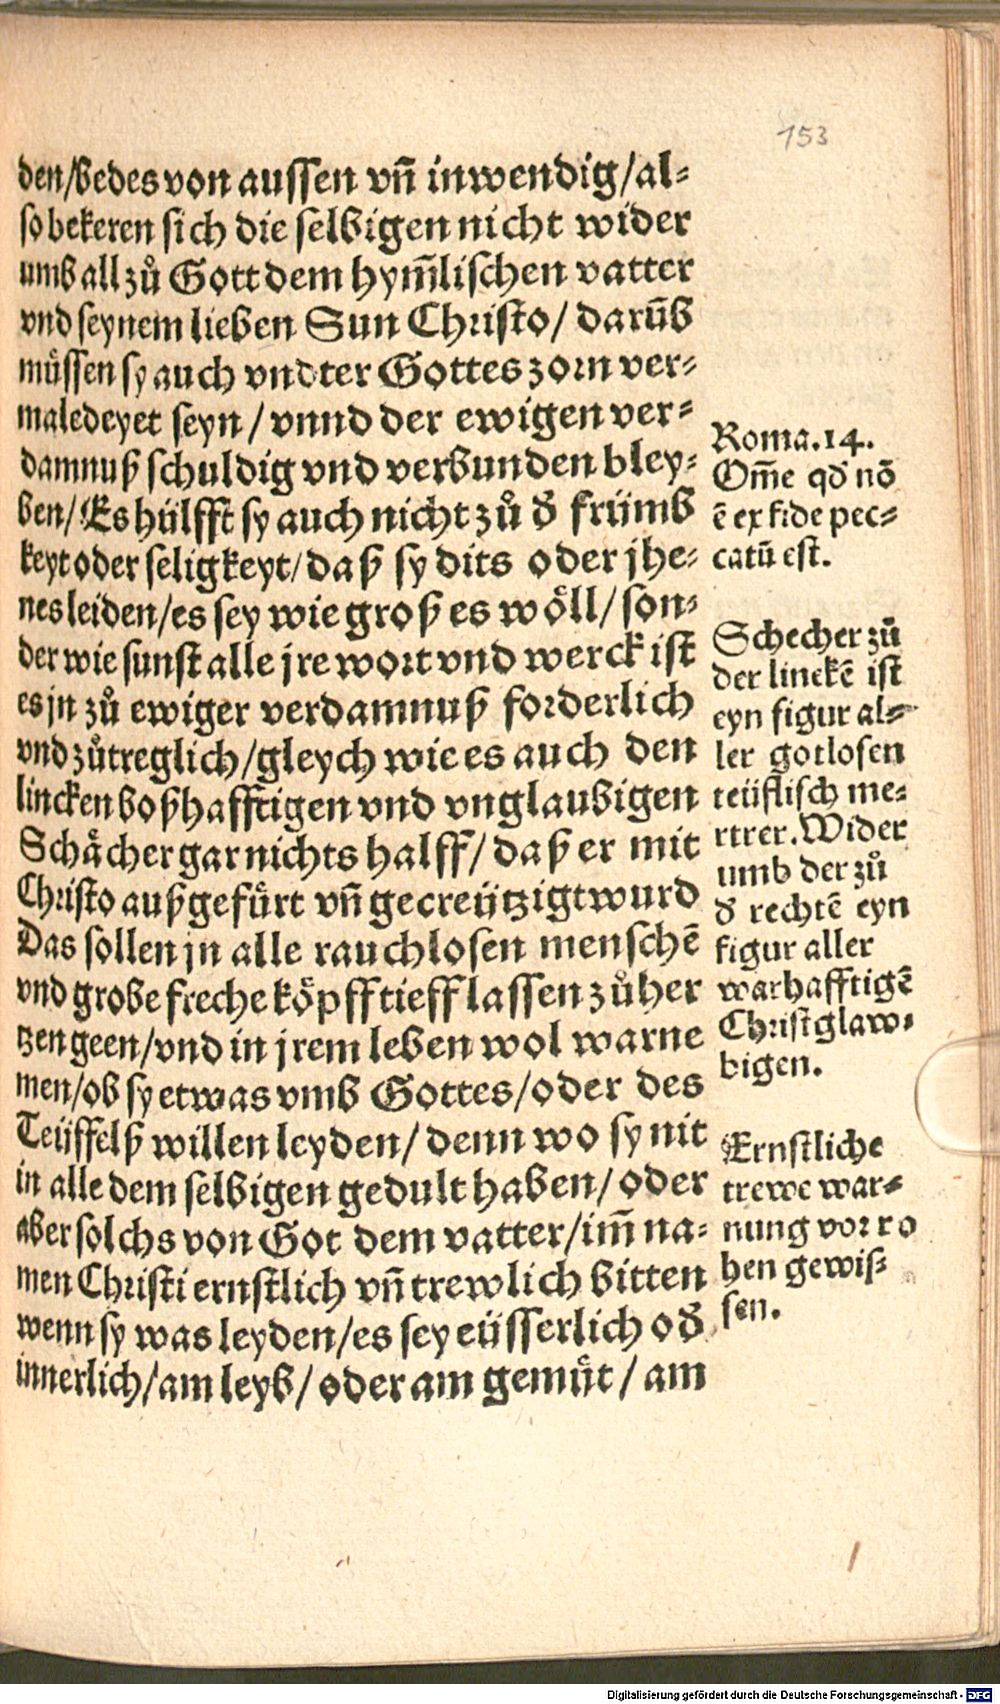 153
den/bedes von aussen vn̄ inwendig/al⸗
so bekeren sich die selbigen nicht wider
umb all zů Gott dem hym̄lischen vatter
vnd seynem lieben Sun Christo/ darūb
müssen sy auch vndter Gottes zorn ver⸗
maledeyet seyn/ vnnd der ewigen ver⸗
damnuß schuldig vnd verbunden bley⸗
ben/ Es hülfft sy auch nicht zů d̕ frümb
keyt oder seligkeyt/ daß sy dits oder jhe⸗
nes leiden/es sey wie groß es wöll/ son⸗
der wie sunst alle jre wort vnd werck ist
es jn zů ewiger verdamnuß forderlich
vnd zůtreglich/gleych wie es auch den
lincken boßhafftigen vnd vnglaubigen
Schächer gar nichts halff/ daß er mit
Christo außgefürt vn̄ gecreützigt wurd
Das sollen jn alle rauchlosen menschē
vnd grobe freche köpff tieff lassen zů her
tzen geen/vnd in jrem leben wol warne
men/ob sy etwas vmb Gottes/oder des
Teüffelß willen leyden/ denn wo sy nit
in alle dem selbigen gedult haben/ oder
aber solchs von Got dem vatter/im̄ na⸗
men Christi ernstlich vn̄ trewlich bitten
wenn sy was leyden/es sey eüsserlich od̕
innerlich/am leyb/ oder am gemüt / am
Roma.14.
Om̄e qd̕ nō
ē ex fide pec⸗
catū est.
Schecher zů
der linckē ist
eyn figur al⸗
ler gotlosen
teüflisch me⸗
rtrer. Wider
umb der zů
d̕ rechtē eyn
figur aller
warhafftigē
Christglaw⸗
bigen.
Ernstliche
trewe war⸗
nung vor ro
hen gewis⸗
sen.
Digitalisierung gefördert durch die Deutsche Forschungsgemeinschaft - DFG